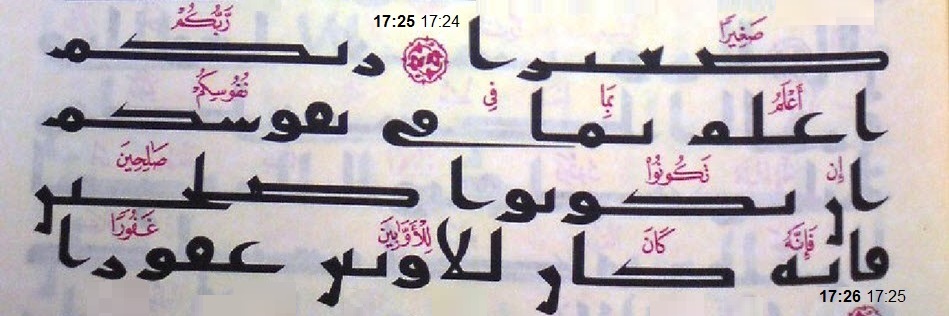 صَغِيرًا 17:25 17:24 رَّبُّكُمْ
صغيرا ربكم
أَعْلَمُ بِمَا فِي نُفُوسِكُمْ
اعلم بما في نفوسكم
إِن تَكُونُوا۟ صَٰلِحِينَ
ان تكونوا صلحين
فَإِنَّهُۥ كَانَ لِلْأَوَّٰبِينَ غَفُورًا
فانه كان للاوبين غفورا
17:26 17:25